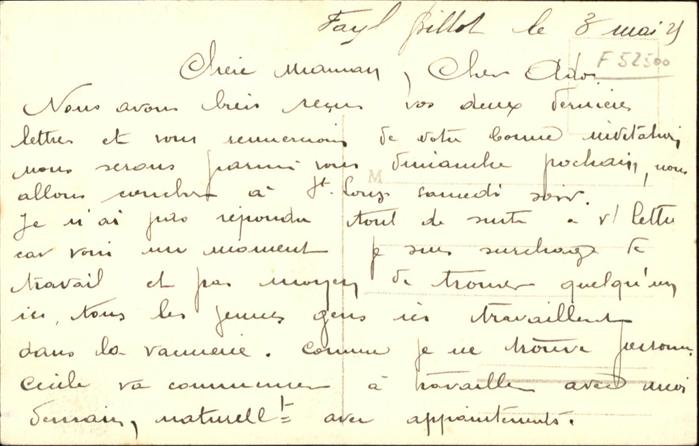 Fayl Billot le 3 mai 21
F 52500
Chère maman, Cher Ado
Nous avons bien reçu vos deux dernières
lettres et vous remercions de votre bonne invitation,
M
nous serons parmi vous dimanche prochain, nous
allons coucher à St. Longe samedi soir.
Je n'ai pas répondu tout de suite à v/ lettre
car voici un moment je suis surchargé de
travail et pas moyen de trouver quelqu'un
ici, tous les jeunes gens ici travaillent
dans la vannerie. Comme je ne trouve personne
Cécile va commencer à travailler avec moi
demain, naturellt avec appointements.